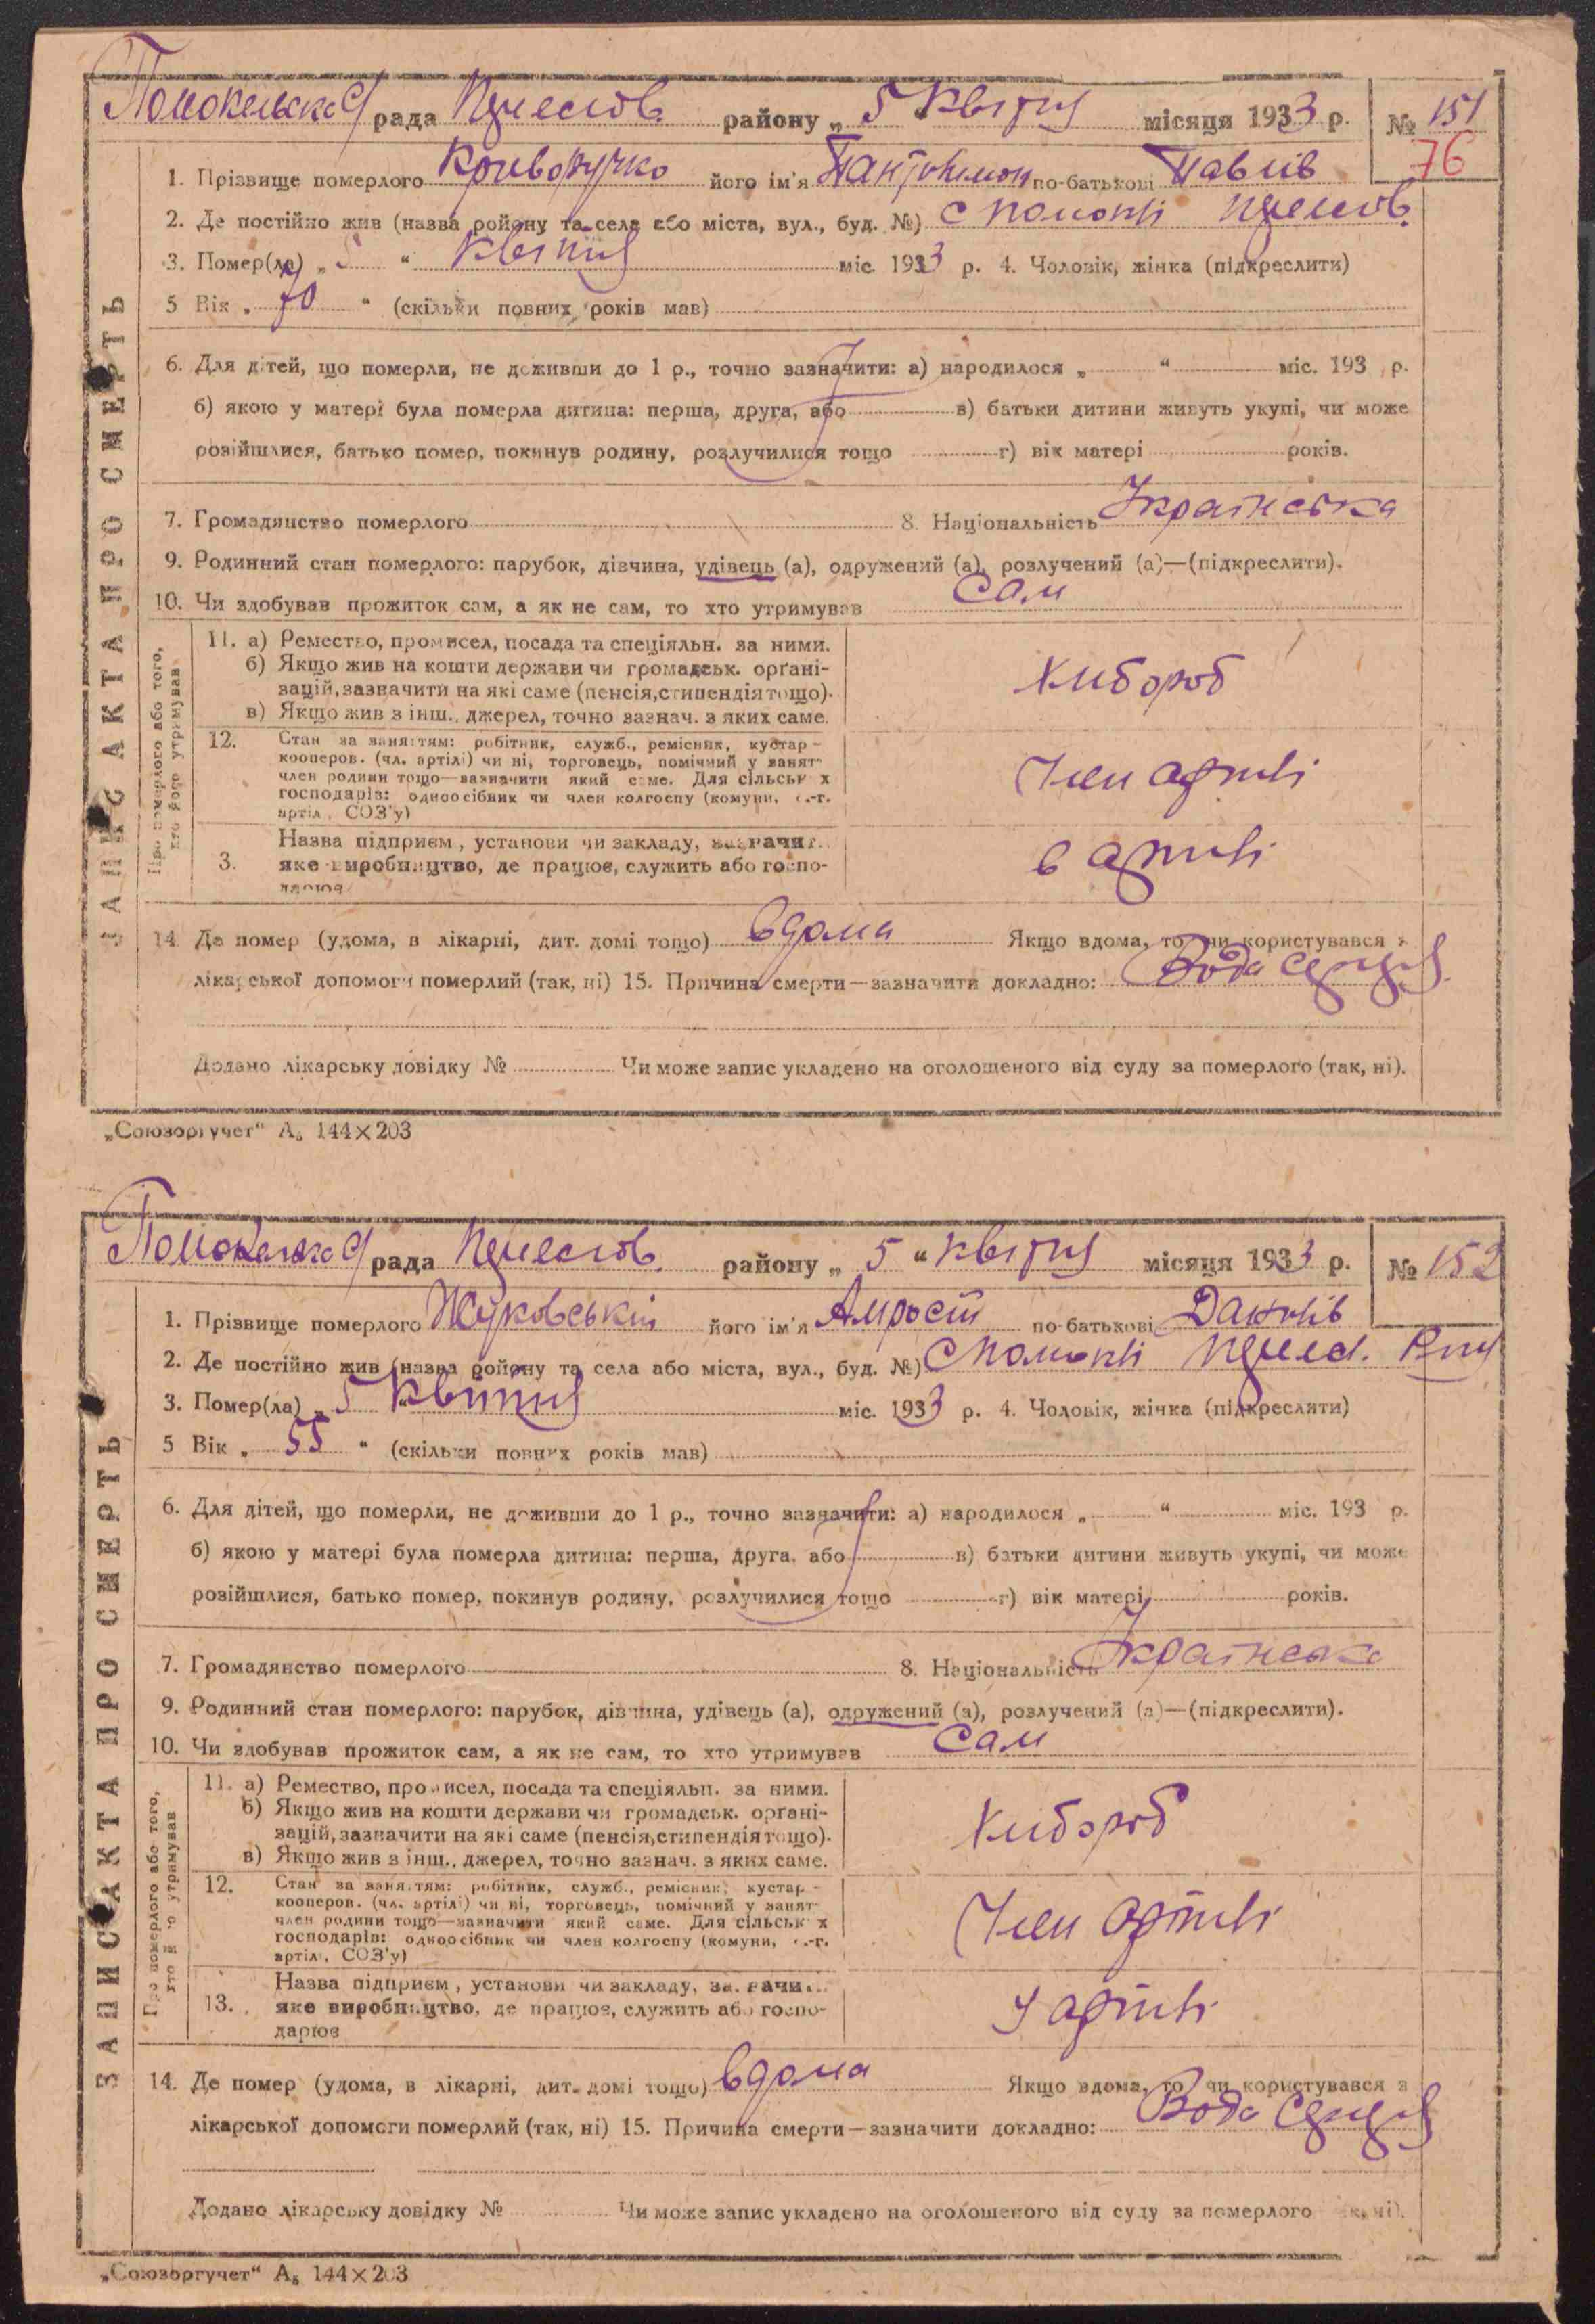 рада району „ 5 “ Квітня місяця 1933 р. № 151
76
1. Прізвище померлого Криворучко його ім'я Пантелимон по-батькові Павлів
2. Де постійно жив (назва ройону та села або міста, вул., буд. №) с
3. Помер(ла) „ 5 “ Квітня міс. 1933 р. 4. Чоловік, жінка (підкреслити)
5 Вік „ 70 “ (скільки повних років мав)
6. Для дітей, що померли, не доживши до 1 р., точно зазначити: а) народилося „ “ міс. 193 р.
б) якою у матері була померла дитина: перша, друга, або в) батьки дитини живуть укупі, чи може
розійшлися, батько помер, покинув родину, розлучилися тощо г) вік матері років.
7. Громадянство померлого 8. Національність Українська
9. Родинний стан померлого: парубок, дівчина, удівець (а), одружений (а), розлучений (а)—(підкреслити).
10. Чи здобував прожиток сам, а як не сам, то хто утримував Сам
ЗАПИС АКТА ПРО СМЕРТЬ
Про померлого або того,
хто його утримував
11. а) Ремество, промисел, посада та спеціяльн. за ними.
б) Якщо жив на кошти держави чи громадськ. орґані-
зацій, зазначити на які саме (пенсія, стипендія тощо).
в) Якщо жив з інш., джерел, точно зазнач. з яких саме.
Хлибороб
12. Стан за заняттям: робітник, служб., ремісник, кустар -
кооперов. (чл. артілі) чи ні, торговець, помічний у занят-
член родини тощо—зазначити який саме. Для сільськ х
господарів: одноосібник чи член колгоспу (комуни, с.-г.
артіл , СОЗ'у)
Член артилі
3. Назва підприєм , установи чи закладу, зазначит.
яке виробництво, де працює, служить або госпо-
дарює
в артилі
14 Де помер (удома, в лікарні, дит. домі тощо) вдома Якщо вдома, то чи користувався з
лікарської допомоги померлий (так, ні) 15. Причина смерти—зазначити докладно: Вода серця
Додано лікарську довідку № Чи може запис укладено на оголошеного від суду за померлого (так, ні).
„Союзоргучет“ А₅ 144×203
рада району „ 5 “ Квітня місяця 1933 р. № 152
1. Прізвище померлого Жуковський його ім'я по-батькові Данилів
2. Де постійно жив (назва ройону та села або міста, вул., буд. №) с
3. Помер(ла) „ 5 “ Квітня міс. 1933 р. 4. Чоловік, жінка (підкреслити)
5 Вік „ 55 “ (скільки повних років мав)
6. Для дітей, що померли, не доживши до 1 р., точно зазначити: а) народилося „ “ міс. 193 р.
б) якою у матері була померла дитина: перша, друга, або в) батьки дитини живуть укупі, чи може
розійшлися, батько помер, покинув родину, розлучилися тощо г) вік матері років.
7. Громадянство померлого 8. Національність Українська
9. Родинний стан померлого: парубок, дівчина, удівець (а), одружений (а), розлучений (а)—(підкреслити).
10. Чи здобував прожиток сам, а як не сам, то хто утримував Сам
ЗАПИС АКТА ПРО СМЕРТЬ
Про померлого або того,
хто його утримував
11. а) Ремество, промисел, посада та спеціяльн. за ними.
б) Якщо жив на кошти держави чи громадськ. орґані-
зацій, зазначити на які саме (пенсія, стипендія тощо).
в) Якщо жив з інш., джерел, точно зазнач. з яких саме.
Хлибороб
12. Стан за заняттям: робітник, служб., ремісник, кустар -
кооперов. (чл. артілі) чи ні, торговець, помічний у занят-
член родини тощо—зазначити який саме. Для сільськ х
господарів: одноосібник чи член колгоспу (комуни, с.-г.
артіл , СОЗ'у)
Член артилі
13. Назва підприєм , установи чи закладу, зазначит.
яке виробництво, де працює, служить або госпо-
дарює
У артилі
14. Де помер (удома, в лікарні, дит. домі тощо) вдома Якщо вдома, то чи користувався з
лікарської допомоги померлий (так, ні) 15. Причина смерти—зазначити докладно: Вода серця
Додано лікарську довідку № Чи може запис укладено на оголошеного від суду за померлого (так, ні).
„Союзоргучет“ А₅ 144×203